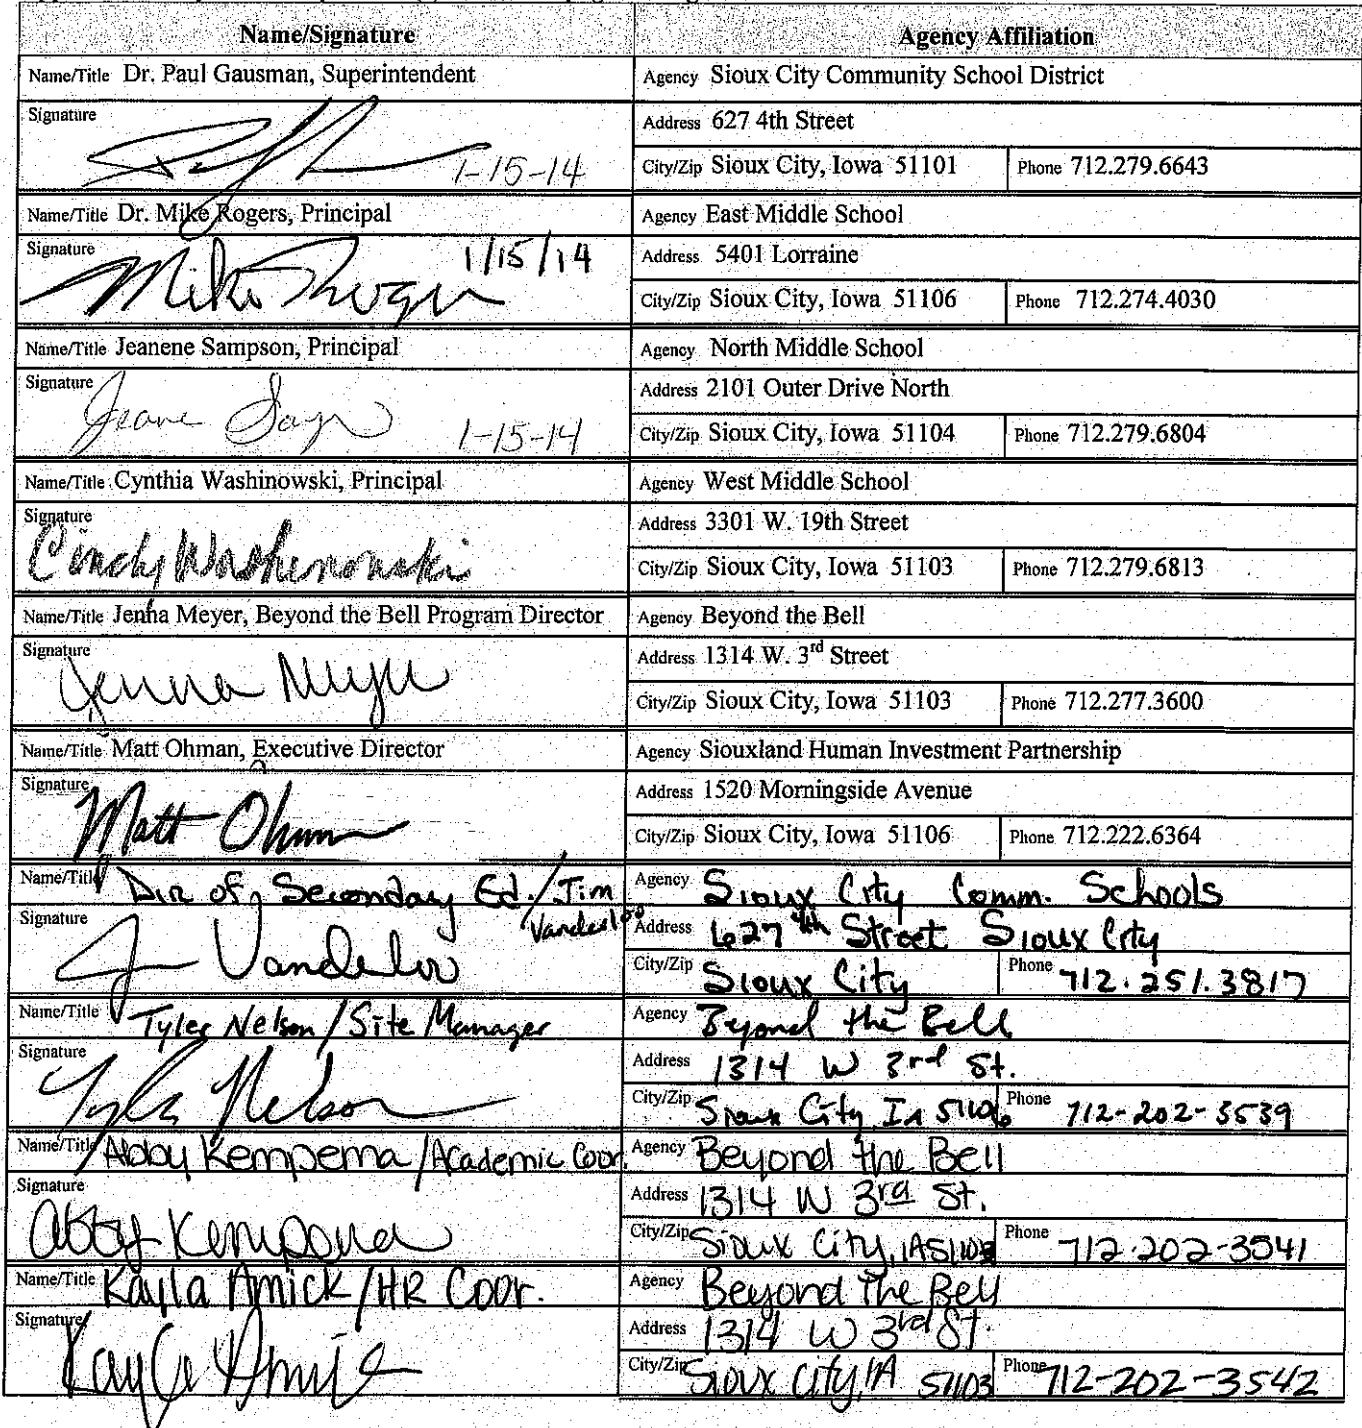 Name/Signature Agency Affiliation
Name/Title Dr. Paul Gausman, Superintendent Agency Sioux City Community School District
Signature Address 627 4th Street
1-15-14 City/Zip Sioux City, Iowa 51101 Phone 712.279.6643
Name/Title Dr. Mike Rogers, Principal Agency East Middle School
Signature 1/15/14 Address 5401 Lorraine
Mike Rogers City/Zip Sioux City, Iowa 51106 Phone 712.274.4030
Name/Title Jeanene Sampson, Principal Agency North Middle School
Signature Address 2101 Outer Drive North
1-15-14 City/Zip Sioux City, Iowa 51104 Phone 712.279.6804
Name/Title Cynthia Washinowski, Principal Agency West Middle School
Signature Address 3301 W. 19th Street
Cindy Washinowski City/Zip Sioux City, Iowa 51103 Phone 712.279.6813
Name/Title Jenna Meyer, Beyond the Bell Program Director Agency Beyond the Bell
Signature Address 1314 W. 3rd Street
Jenna Meyer City/Zip Sioux City, Iowa 51103 Phone 712.277.3600
Name/Title Matt Ohman, Executive Director Agency Siouxland Human Investment Partnership
Signature Address 1520 Morningside Avenue
Matt Ohman City/Zip Sioux City, Iowa 51106 Phone 712.222.6364
Name/Title Dir of Seconday Ed./Jim Vanderloo Agency Sioux City Comm. Schools
Signature Address 627 4th Street Sioux City
J Vanderloo City/Zip Sioux City Phone 712.251.3817
Name/Title Tyler Nelson/Site Manager Agency Beyond the Bell
Signature Address 1314 W 3rd St.
Tyler Nelson City/Zip Sioux City, Ia 51106 Phone 712-202-3539
Name/Title Abby Kempema/Academic Coor. Agency Beyond the Bell
Signature Address 1314 W 3rd St.
Abby Kempema City/Zip Sioux City, IA 51103 Phone 712-202-3541
Name/Title Kayla Amick/HR Coor. Agency Beyond The Bell
Signature Address 1314 W 3rd St.
Kayla Amick City/Zip Sioux City, IA 51103 Phone 712-202-3542